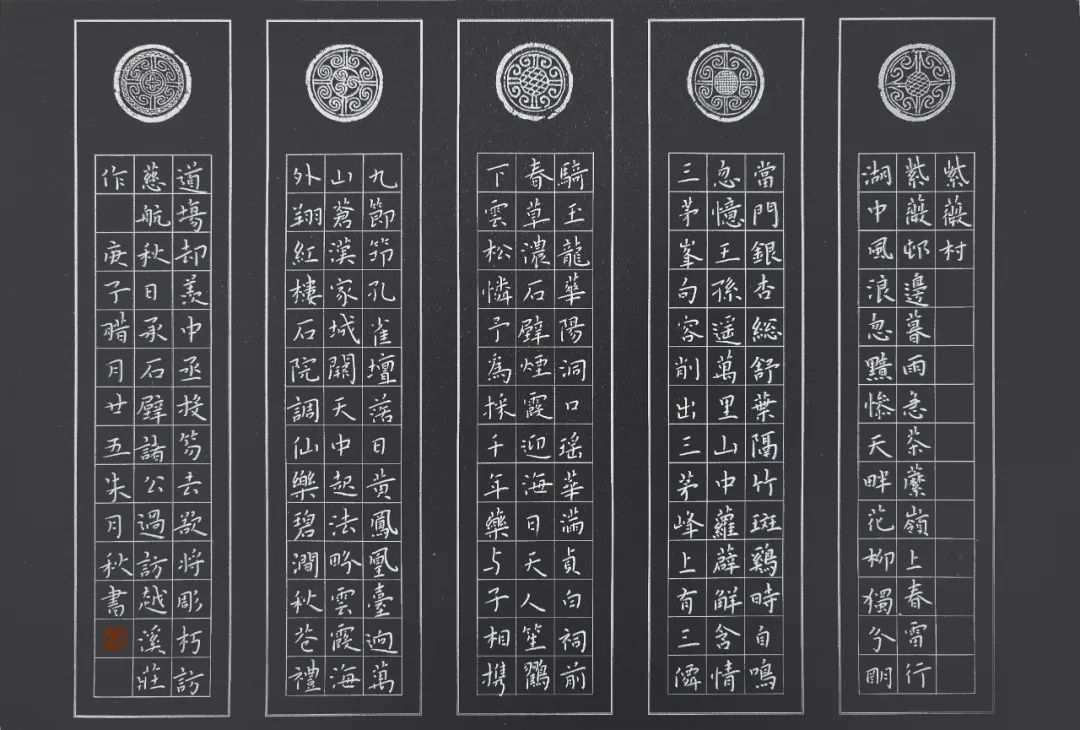 紫薇村
紫薇邨邊暮雨急茶蘼嶺上春雷行
湖中風浪忽黯慘天畔花柳獨分明
當門銀杏總舒葉隔竹斑鷄時自鳴
忽憶王孫遥萬里山中蘿薜解含情
三茅峯句容削出三茅峰上有三僊
騎玉龍華陽洞口瑶華滿貞白祠前
春草濃石壁煙霞迎海日天人笙鶴
下雲松憐予為採千年藥与子相携
九節筇孔雀壇荒日黄鳳凰臺迥萬
山蒼漢家城闕天中起法畧雲霞海
外翔紅樓石院調仙樂碧澗秋苍禮
道場却羨中丞投笏去欲将彫朽訪
慈航秋日承石壁諸公過訪越溪莊
作 庚子腊月廿五朱月秋書